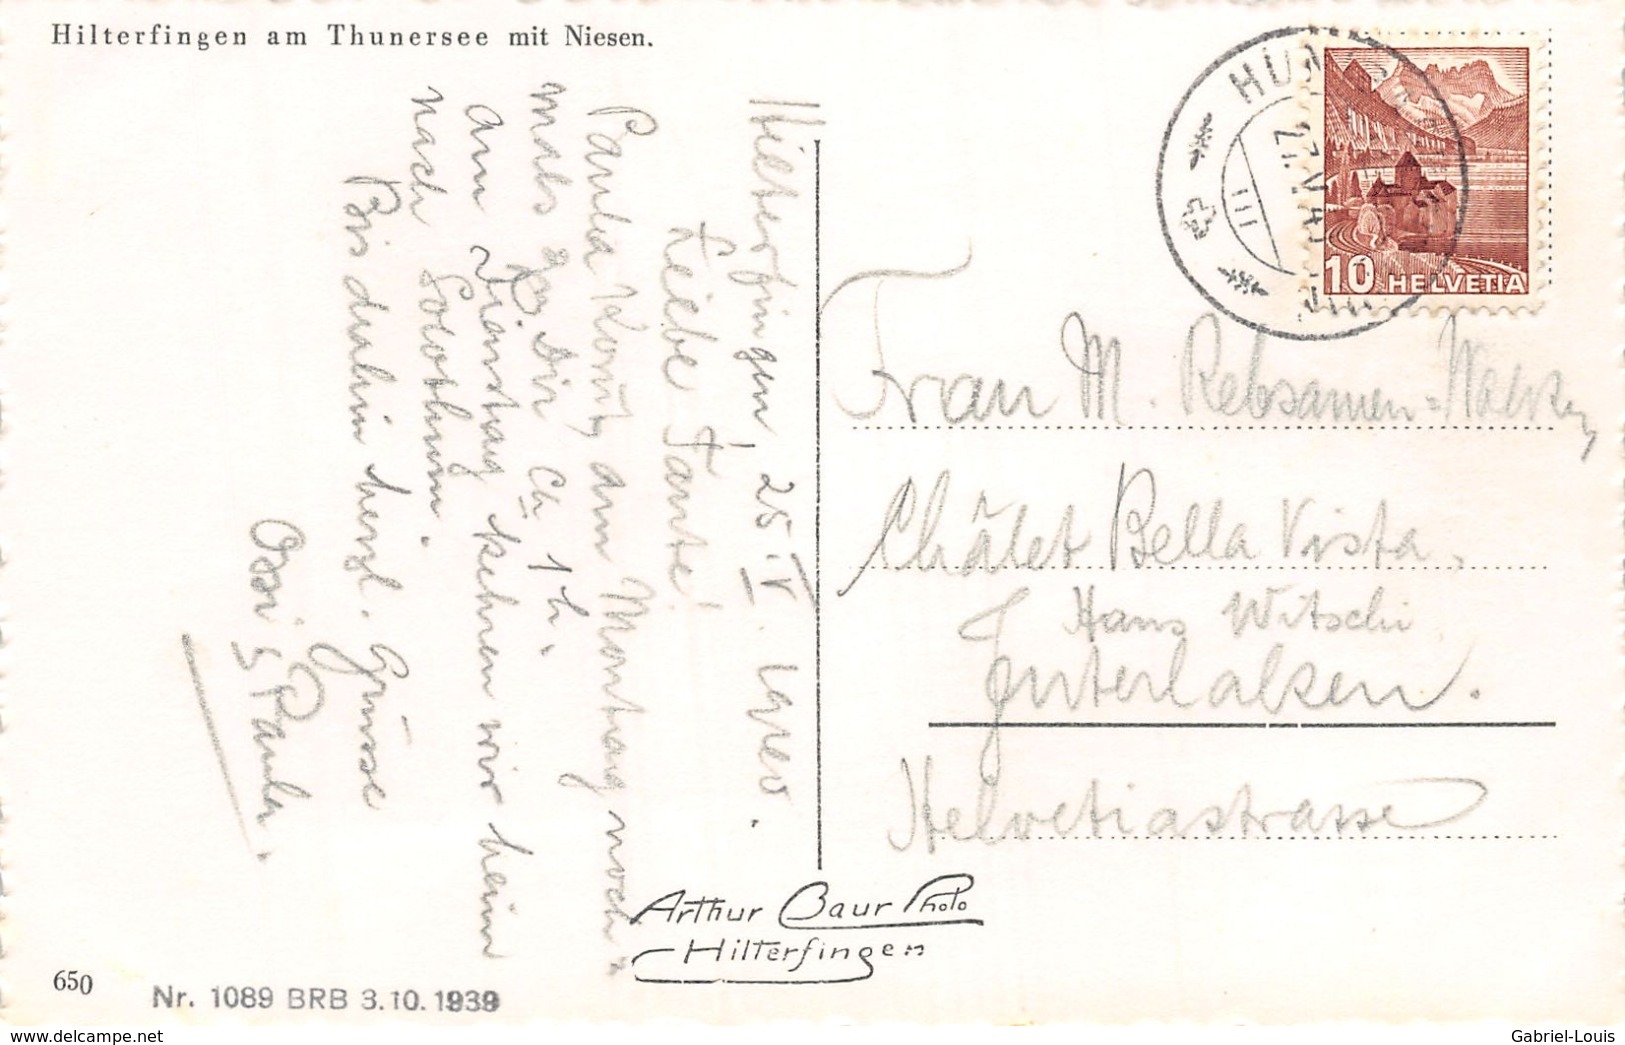 Hilterfingen am Thunersee mit Niesen.
Hilterfingen, 25 V.
Liebe Tante!
Paula kommt am Montag noch-
mals z Dir ca 1 h.
Am Dienstag kehren wir heim
nach Solothurn.
Bis dahin herzl. Grüsse
Ossi & Paula.
HUN
27. V. 40
III
10 HELVETIA
Frau M. Rebsamen=
Châlet Bella Vista,
Hans Witschi
Interlaken.
Helvetiastrasse
Arthur Baur Photo
Hilterfingen
650
Nr. 1089 BRB 3.10.1939
delcampe.net
Gabriel-Louis